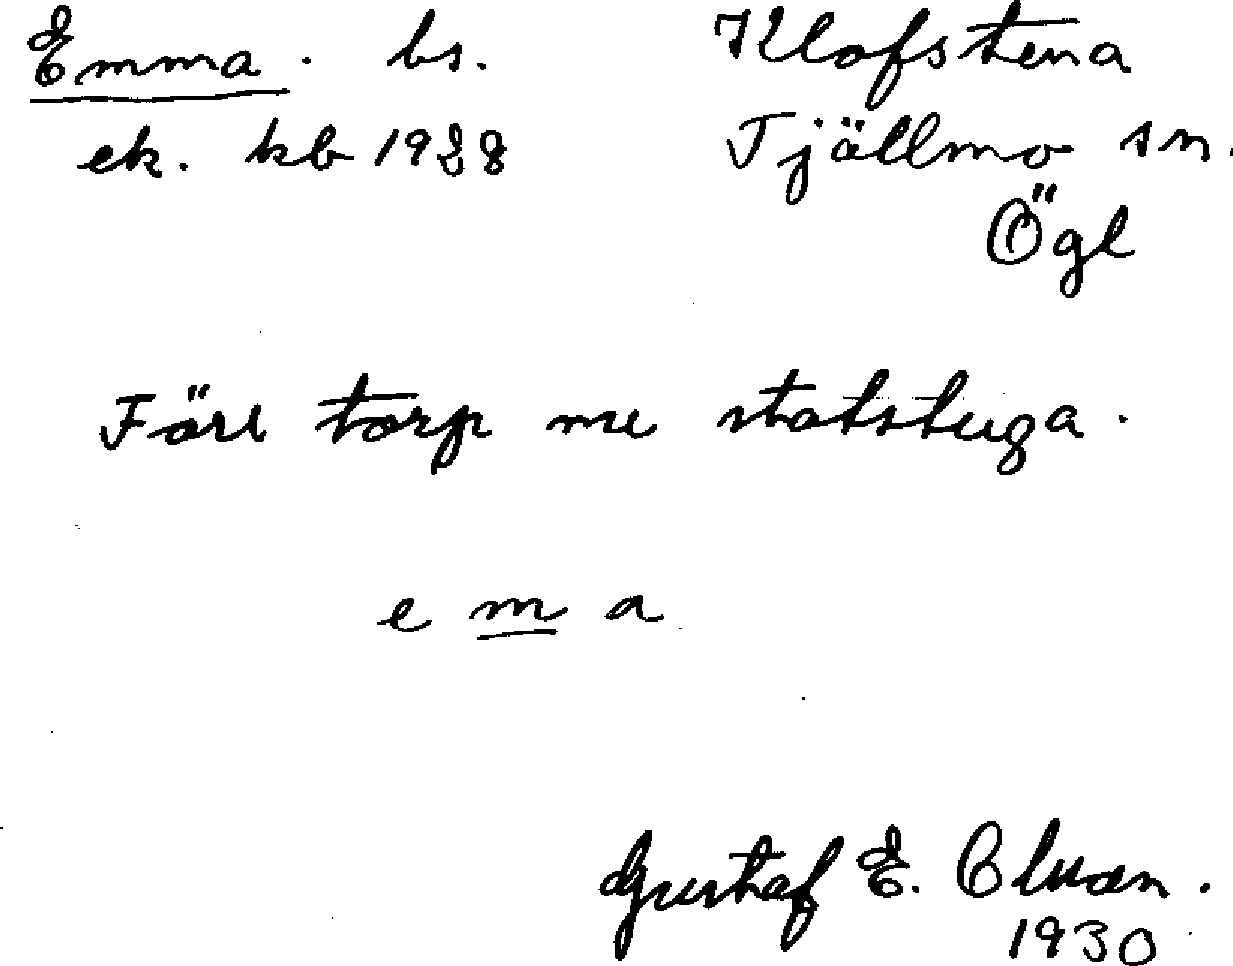 Emma. bs. Klofstena
ek. kb 1928 Tjällmo sn.
Ögl
Förr torp me statstuga.
e m a
Gustaf E. Clwæn.
1930